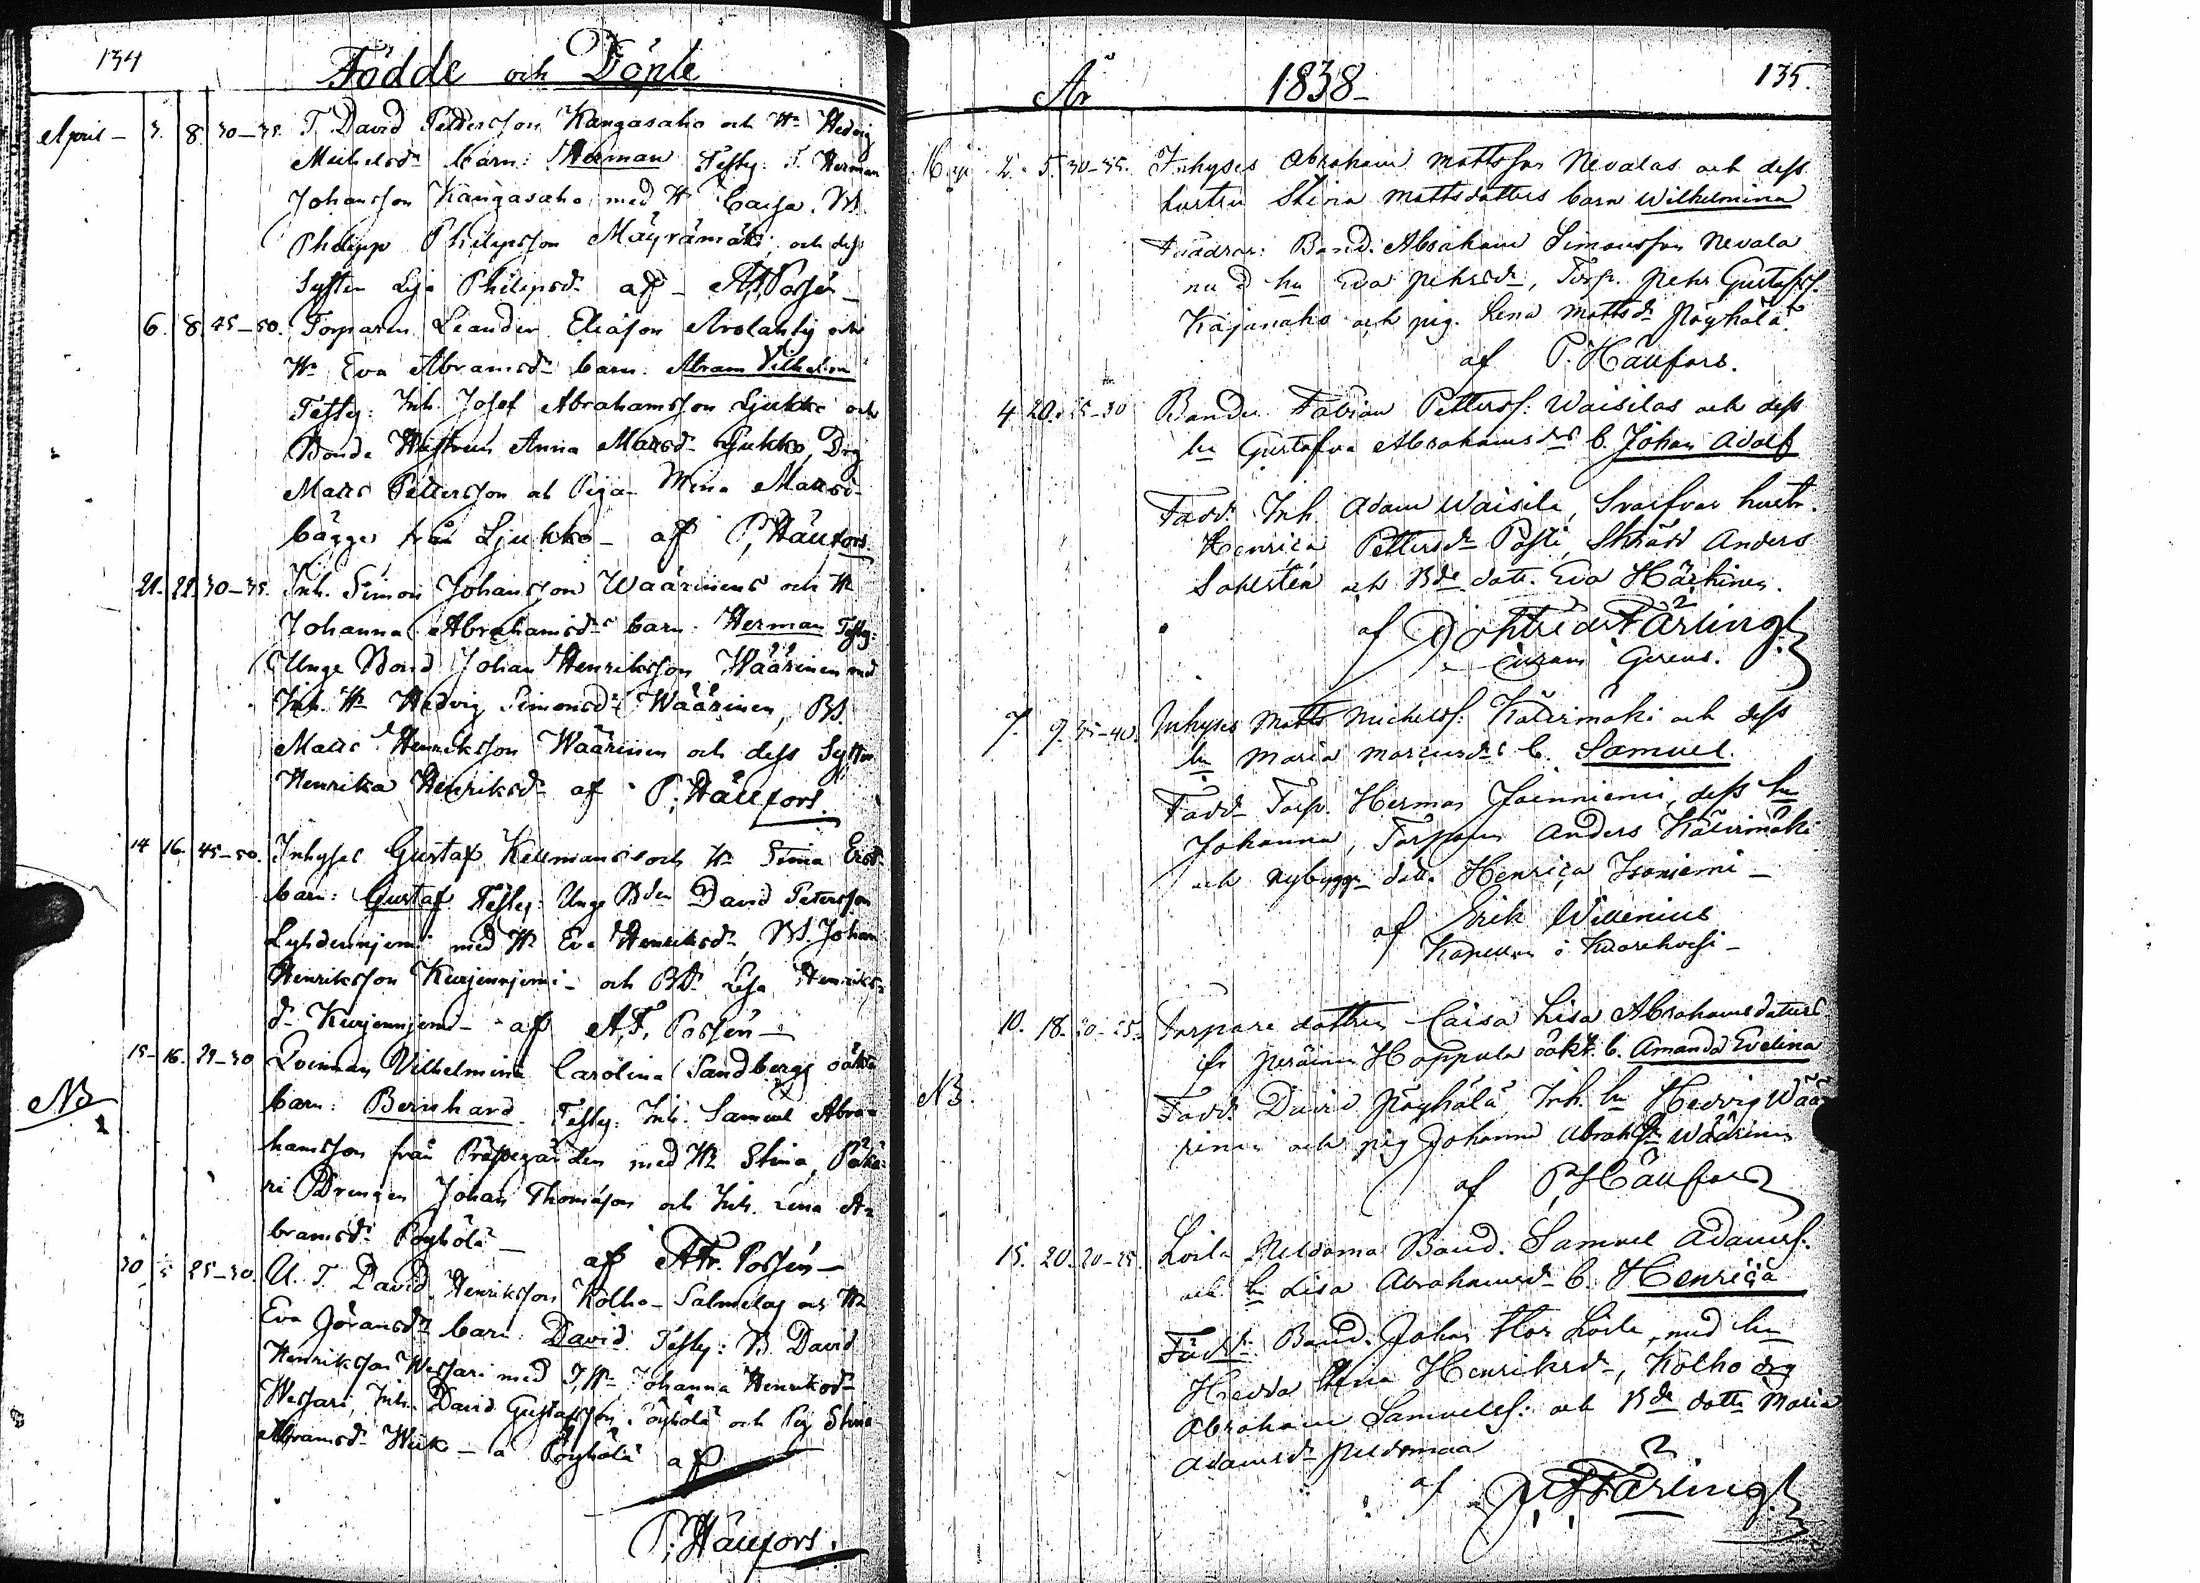 134
Födde och Döpte
April - 3. 8. 30-35. T. David Pettersson Kangasaho och H. Hedvig
Michelsd. barn: Herman Testg: T. Herman
Johansson Kangasaho med H. Caisa. BS.
Philipp Philipsson Mäyrämäki och dess
Syster Lisa Philipsd. af - A.F. Posén -
6. 8. 45-50. Torparen Leander Eliasson Arolahti och
H. Eva Abramsd. barn: Abram Vilhelm
Testg: Inh. Josef Abrahamsson Ljukko och
Bonde Hustrun Anna Matsd. Ljukko, Drg
Matts Pettersson och Pigan Mina Mattsd.
bägge från Ljukko - af P. Häufors
21. 22. 30-35. Inh. Simon Johansson Wäärinens och H.
Johanna Abrahamsd. barn: Herman Testg:
Unge Bond Johan Henriksson Wäärinen med
Inh. H. Hedvig Simonsd. Wäärinen, BS.
Matts Henriksson Wäärinen och dess Syster
Henrika Henriksd. af P. Häufors.
14 16. 45-50. Inhyses Gustaf Kellmans och H. Stina Ersd.
barn: Gustaf Testg: Unge Bden David Petersson
med H. Eva Henriksd. BS. Johan
Henriksson Kurjennjemi - och BD. Lisa Henriks=
d. Kurjennjemi - af A.F. Posén -
15- 16. 29-30 Qvinnan Vilhelmina Carolina Sandbergs oäkta
NB
barn: Bernhard. Testg: Inh. Samuel Abra=
hamsson från Prästegården med H. Stina,
Drengen Johan Thomasson och Inh. Lena A=
bramsd. Pöyhölä - af A.Fr. Posén -
30 5 25-30. U. T. David Henriksson Kolho-Salmelas och H.
Eva Göransd. barn: David. Testg: B. David
Henriksson Wessari med T.H. Johanna Henriksd.
Wessari, Inh. David Gustafsson Pöyhölä och Pig Stina
Abramsd. - a Pöyhölä af
P. Häufors.
År 1838 - 135.
Maji 2. 5. 30-35. Inhyses Abraham Mattsson Nevalas och dess
hustru Stina Mattsdotters barn Wilhelmina
Faddrar: Bond. Abraham Simonsson Nevala
med hu Eva Pehrsd., Torp. Pehr Gustafss.
Kajanaho och pig. Lena Mattsd. Pöyhölä.
af P. Häufors.
4. 20. 25-30 Bonden Fabian Petterss: Waisilas och dess
hu Gustafva Abrahamsds b. Johan Adolf
Fadd. Inh. Adam Waisila, Svarfvar hustr.
Henrica Pettersd. Posti, Skrädd Anders
Sohlstén och Bde dott. Eva Härkinen.
af Färling
curam Gerens.
7. 9. 35-40. Inhyses Matts Michelss: Kätkimäki och dess
hu Maria Marcusds b. Samuel
Fadd. Torp. Herman Joenniemi, dess hu
Johanna, Torparen Anders
och nybygg. dott. Henrica Isoniemi -
af Erik Willenius
Kapellan i Kuorehvesi -
10. 18. 20-25. Torpare dottren Caisa Lisa Abrahamsdotters
fr Peräinen Hoppula oäkt. b. Amanda Evelina
NB. Fadd. David Pöyhölä, Inh. hu Hedvig Wää=
rinen och pig Johanna Abrahsd. Wäärinen
af P. Häufors
15. 20. 20-25. Loila Peldoma Bond. Samuel Adamss.
och hu Lisa Abrahamsd. b. Henrica
Fadd. Bond. Johan Loila, med hu
Hedda Henriksd., Kolho drg
Abraham Samuelss: och Bde dott. Maria
Adamsd. Peldomaa
af Färling